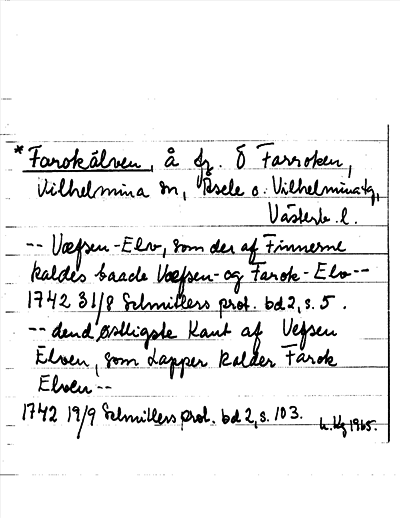 * Farokälven, å fr. ö Farroken,
Vilhelmina sn, Åsele o. Vilhelmina tg,
Västerb. l.
-- Vefsen-Elv, som der af Finnerne
kaldes baade Vefsen- og Farok-Elv --
1742 31/8 Schnitlers prot. bd 2, s. 5.
-- dend østligste Kant af Vefsen
Elven, som Lapper kalder Farok
Elven --
1742 19/9 Schnitlers prot. bd 2, s. 103.
1965.